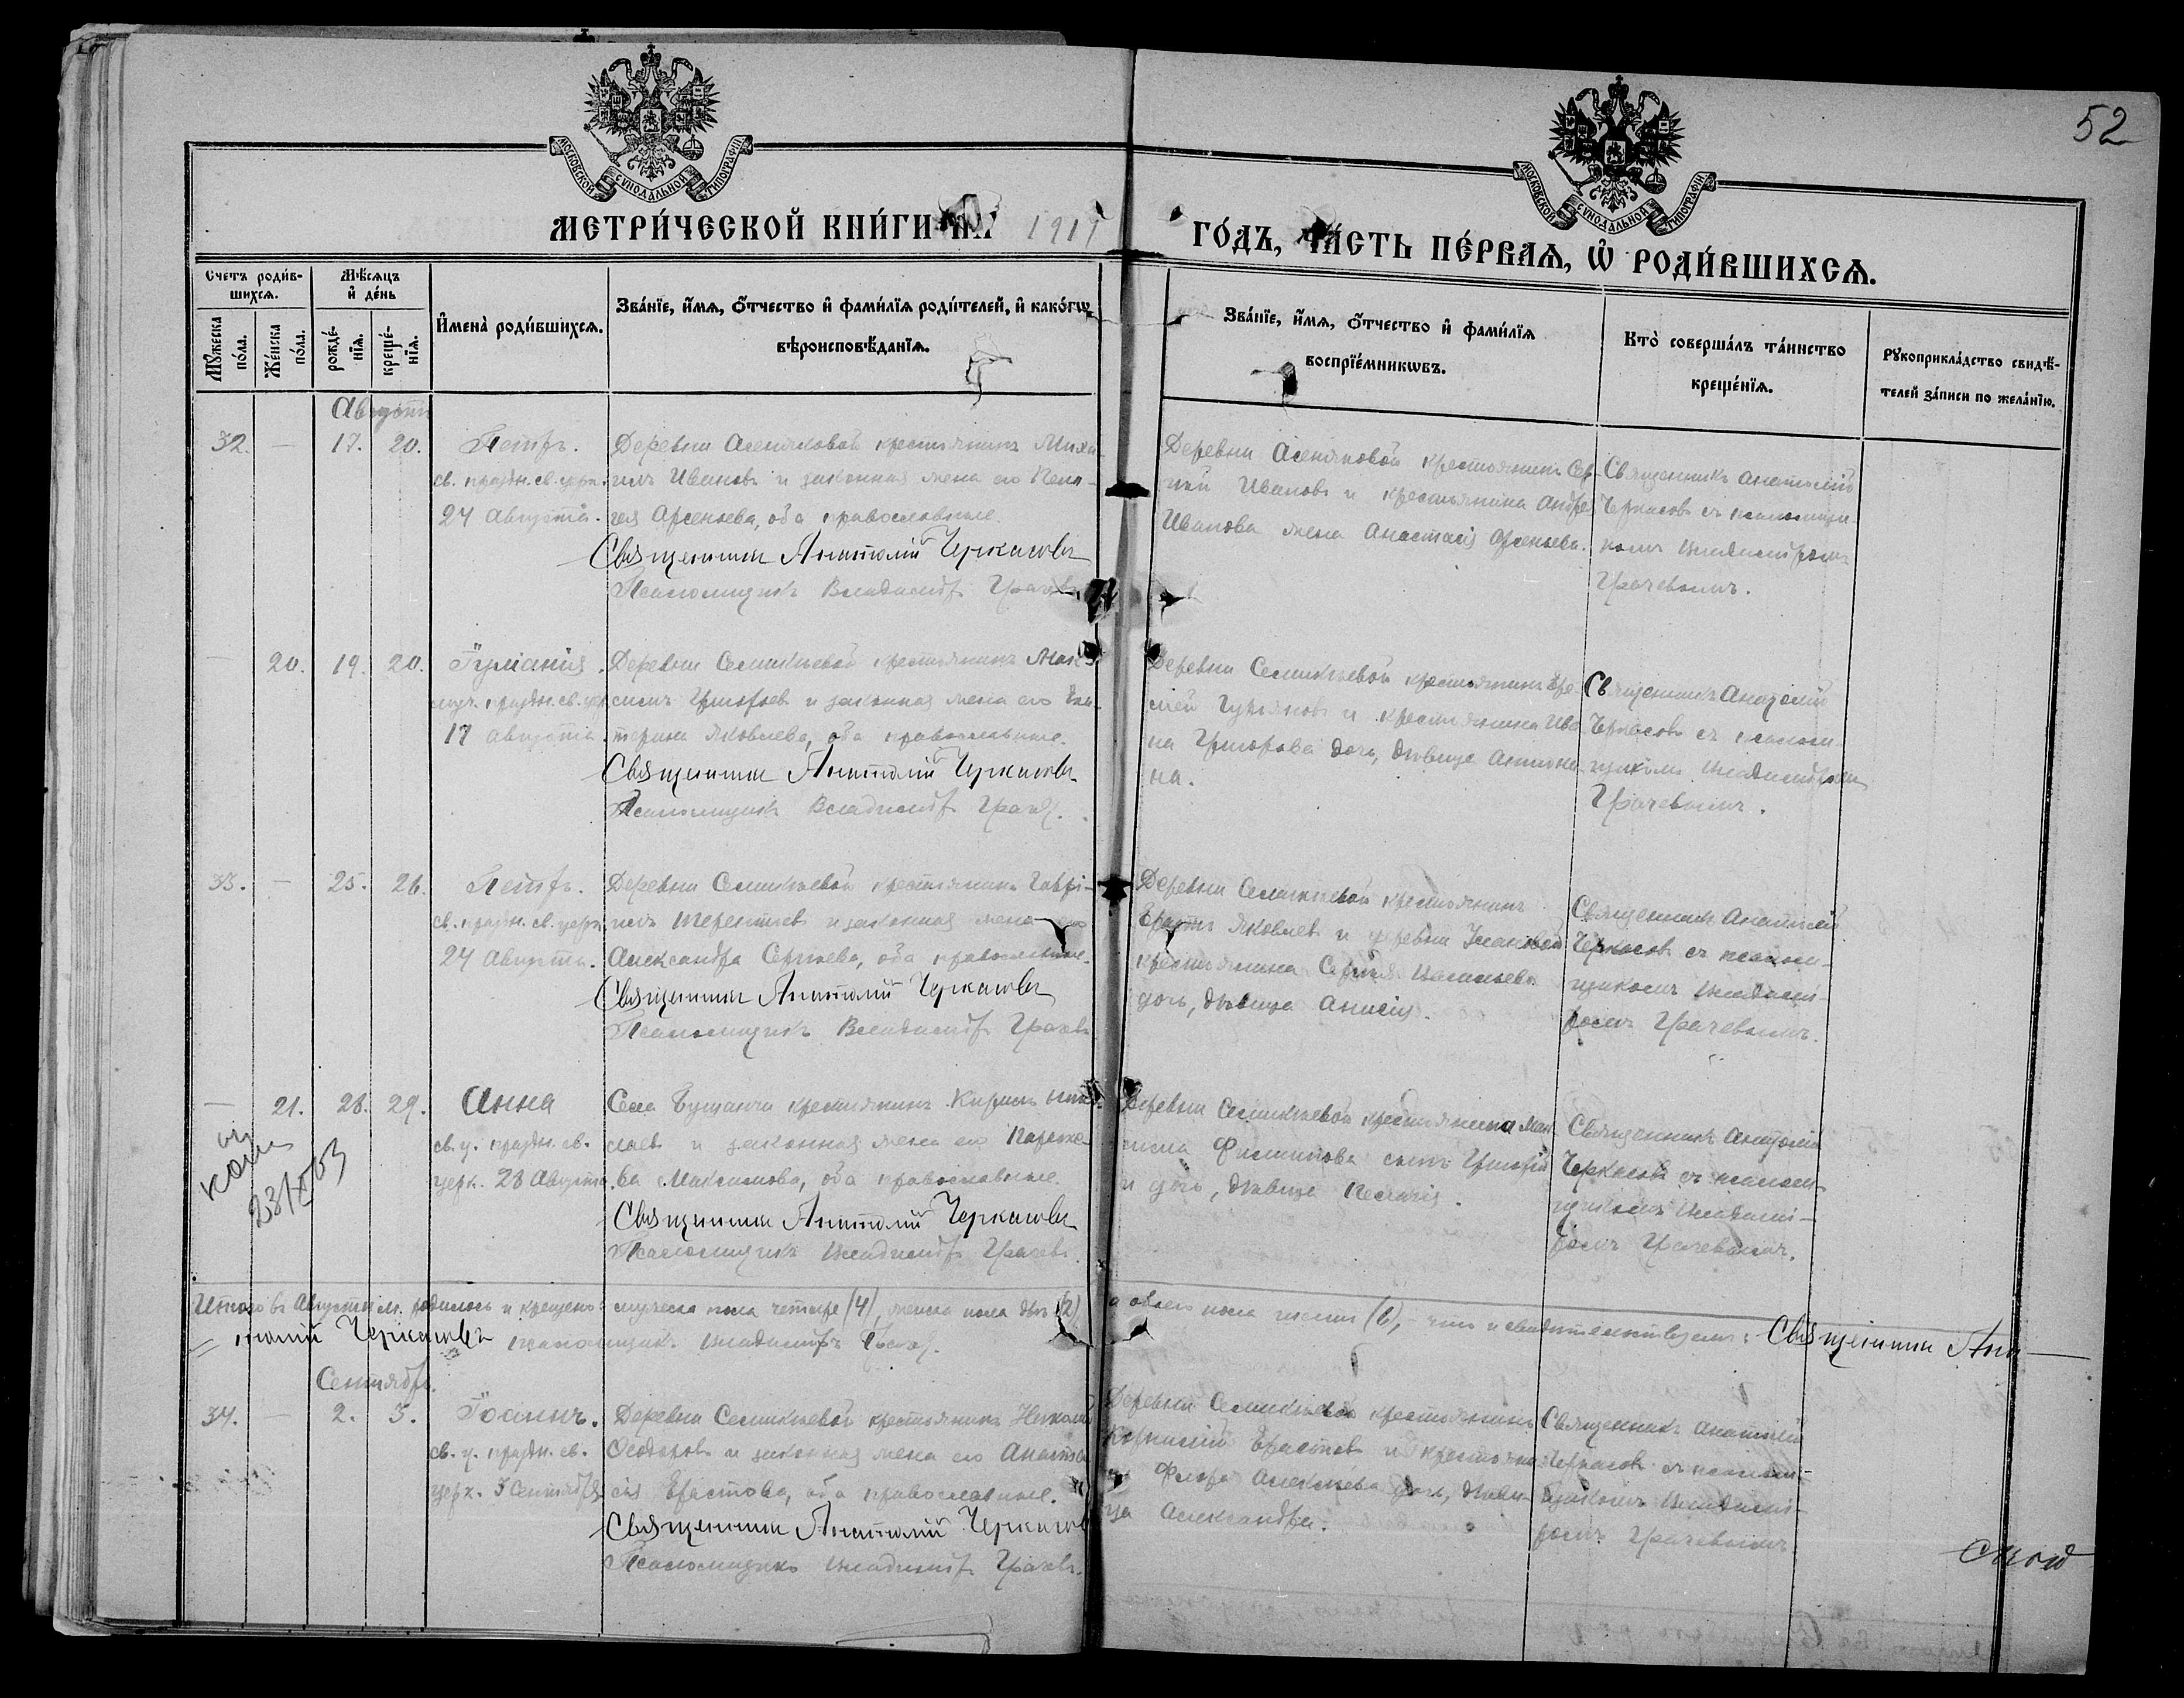 52
МОСКОВСКОЙ СѴНОДАЛЬНОЙ ТИПОГРАФІИ
МОСКОВСКОЙ СѴНОДАЛЬНОЙ ТИПОГРАФІИ
МЕТРИ́ЧЕСКОЙ КНИ́ГИ НА
ГО́ДЪ, ЧА́СТЬ ПЕ́РВАѦ, Ѡ҆ РОДИ́ВШИХСѦ.
Сче́тъ роди́в-
шихсѧ.
Мѣ́сѧцъ
и҆ де́нь
И҆мена̀ роди́вшихсѧ.
Зва́нїе, и҆́мѧ, о҆́тчество и҆ фами́лїѧ роди́телей, и҆ како́гѡ
вѣроисповѣ́данїѧ.
Мꙋ́жеска по́ла.
Же́нска по́ла.
рожде́-
нїѧ.
креще́-
нїѧ.
Зва́нїе, и҆́мѧ, о҆́тчество и҆ фами́лїѧ
воспрїе́мникѡвъ.
Кто̀ соверша́лъ та́инство
креще́нїѧ.
Рꙋкоприкла́дство свидѣ́-
телей за́писи по жела́нїю.
Августъ
32. — 17. 20. Петръ.
св. праздн. св. церк.
24 Августа.
Деревни крестьянинъ Миха-
илъ Ивановъ и законная жена его Пела-
гея Арсеньева, оба православные.
Священникъ Анатолій Черкасовъ
Псаломщикъ Владиміръ Грачевъ
Деревни крестьянинъ Сер-
гей Ивановъ и крестьянина Андрея
Иванова жена Анастасія Арсеньева.
Священникъ Анатолій
Черкасовъ съ псаломщи-
комъ Владиміромъ
Грачевымъ.
— 20. 19. 20. Іуліанія.
праздн. св.
17 августа.
Деревни крестьянинъ Мак-
симъ и законная жена его Ека-
терина Яковлева, оба православные.
Священникъ Анатолій Черкасовъ
Псаломщикъ Владиміръ Грачевъ.
Деревни крестьянинъ Ере-
мей и крестьянина Ива-
на дочь, дѣвица Антони-
на.
Священникъ Анатолій
Черкасовъ съ псалом-
щикомъ Владиміромъ
Грачевымъ.
33. — 25. 26. Петръ.
св. праздн. св. церк.
24 Августа.
Деревни крестьянинъ Гаврі-
илъ Терентьев и законная жена его
Александра Сергѣева, оба православные.
Священникъ Анатолій Черкасовъ
Псаломщикъ Владиміръ Грачевъ
Деревни крестьянинъ
Ерастъ Яковлев и деревни
крестьянина Сергѣя Васильева
дочь, дѣвица Анисія.
Священникъ Анатолій
Черкасовъ съ псалом-
щикомъ Владимі-
ромъ Грачевымъ.
— 21. 28. 29. Анна
св. ц. праздн. св.
церк. 28 Августа.
Села крестьянинъ
и законная жена его Параске-
ва Максимова, оба православные.
Священникъ Анатолій Черкасовъ
Псаломщикъ Владиміръ Грачевъ.
Деревни крестьянина Мак-
сима Филиппова сынъ Григорій
и дочь, дѣвица Пелагія.
Священникъ Анатолій
Черкасовъ съ псалом-
щикомъ Владимі-
ромъ Грачевымъ.
Итого въ Августѣ м. родилось и крещено: мужеска пола четыре (4), женска пола двѣ (2),
а обоего пола шесть (6), – что и свидѣтельствуемъ: Священникъ Ана-
толій Черкасовъ псаломщикъ Владиміръ Грачевъ.
Сентябрь.
34. — 2. 3. Іоаннъ.
св. ц. праздн. св.
церк. Сентября
Деревни крестьянинъ Николай
Ѳеодоровъ и законная жена его Анаста-
сія Ерастова, оба православные.
Священникъ Анатолій Черкасовъ
Псаломщикъ Владиміръ Грачевъ.
Деревни крестьянинъ
Ерастовъ и крестьяни-
на Флора Алексѣева дочь, дѣви-
ца Александра.
Священникъ Анатолій
Черкасовъ съ псалом-
щикомъ Владимі-
ромъ Грачевымъ.